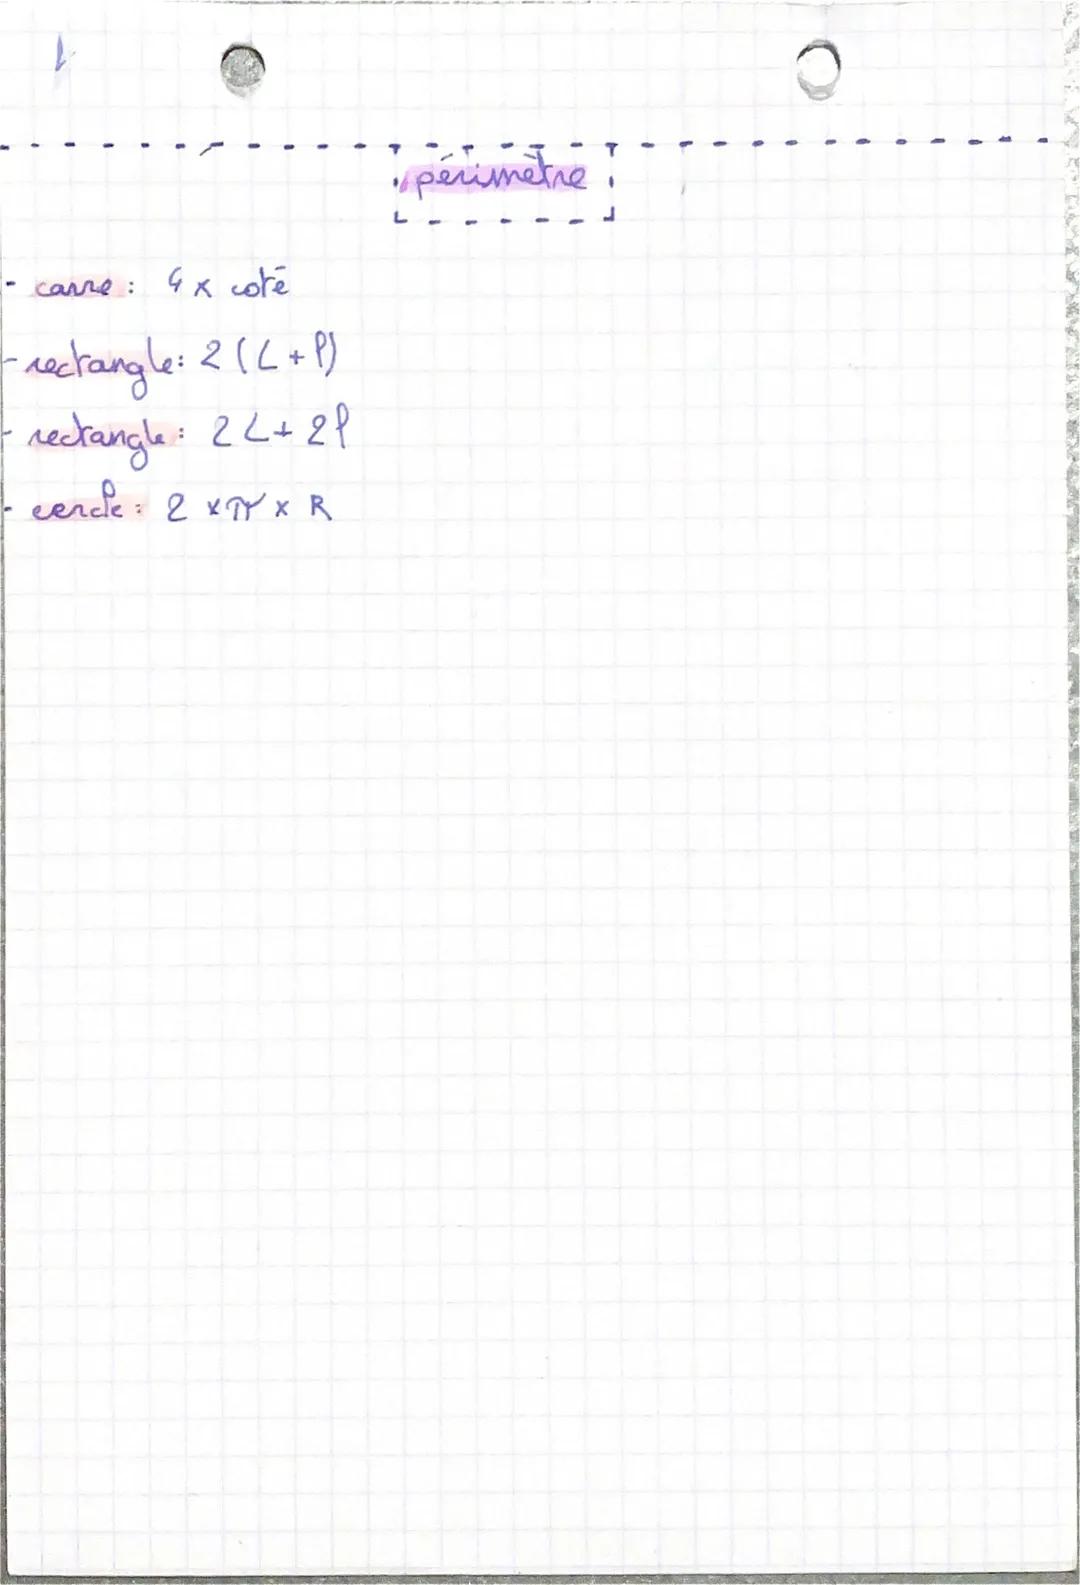 périmètre
- carre : 4 x coté
- rectangle : 2 (L + l)
- rectangle : 2 L + 2 l
- cercle : 2 x π x R